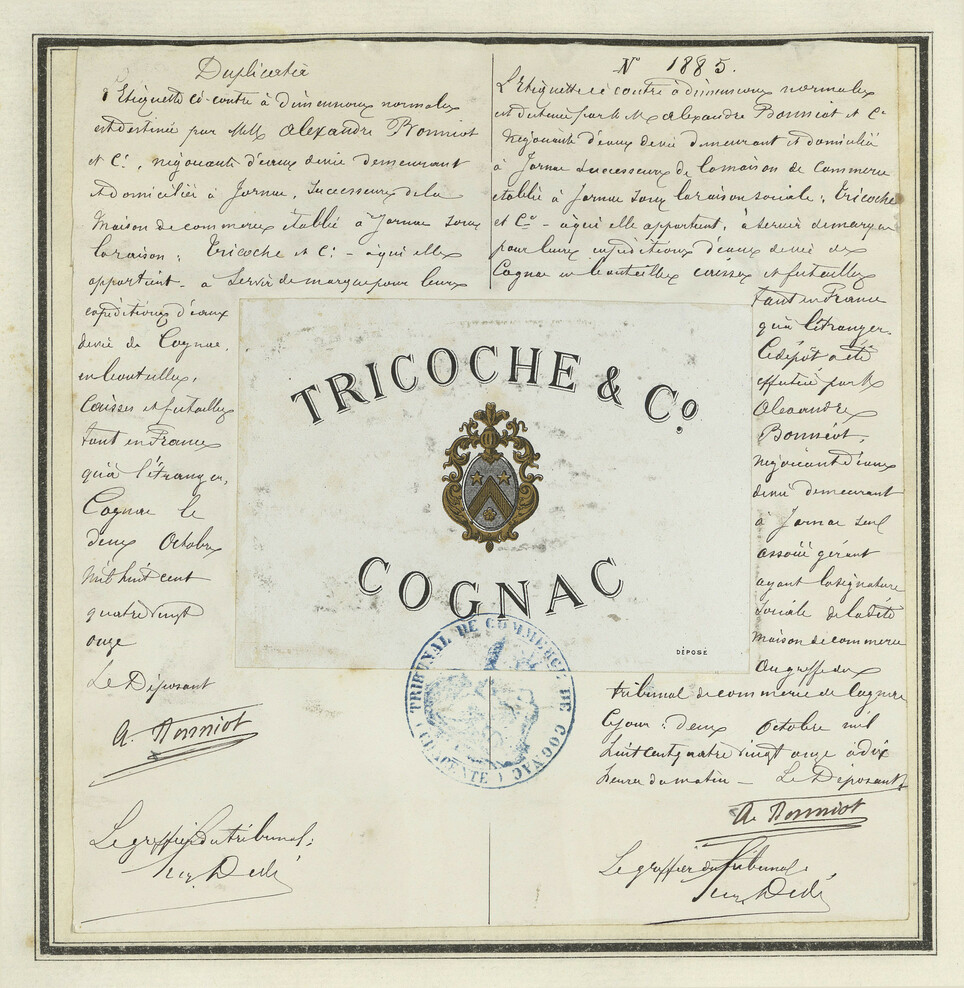 Duplicata
L'Etiquette ci-contre à dimensions normales
est destinée par MM. Alexandre Bonniot
et Cie, négociants d'eaux de vie demeurant
et domiciliés à Jarnac, successeurs de la
Maison de commerce établie à Jarnac sous
la raison : Tricoche et Cie - à qui elle
appartient - à servir de marque pour leurs
expéditions d'eaux
de vie de Cognac,
en bouteilles,
caisses et futailles
tant en France
qu'à l'étranger,
Cognac le
deux Octobre
mil huit cent
quatre vingt
onze
Le Déposant
A. Bonniot
Le greffier du tribunal,
N° 1885.
L'Etiquette ci contre à dimensions normales
est destinée par MM. Alexandre Bonniot et Cie
Négociants d'eaux de vie demeurant et domiciliés
à Jarnac successeurs de la maison de commerce
établie à Jarnac sous la raison sociale, Tricoche
et Cie - à qui elle appartient, à servir de marque
pour leurs expéditions d'eaux de vie de
Cognac en bouteilles caisses et futailles
tant en France
qu'à l'étranger.
Ce dépôt a été
effectué par M
Alexandre
Bonniot,
négociant d'eaux
de vie demeurant
à Jarnac seul
associé gérant
ayant la signature
sociale de la dite
maison de commerce
au greffe du
tribunal de commerce de Cognac
ce jour : deux Octobre mil
huit cent quatre vingt onze à dix
heures du matin - Le Déposant
A. Bonniot
Le greffier du tribunal
TRICOCHE & Co.
COGNAC
DÉPOSÉ
TRIBUNAL DE COMMERCE DE COGNAC (CHARENTE)